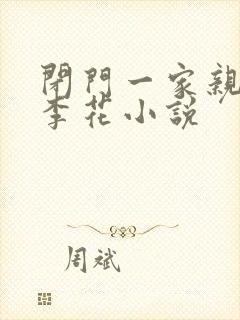 閉門一家親
李花小説
周斌